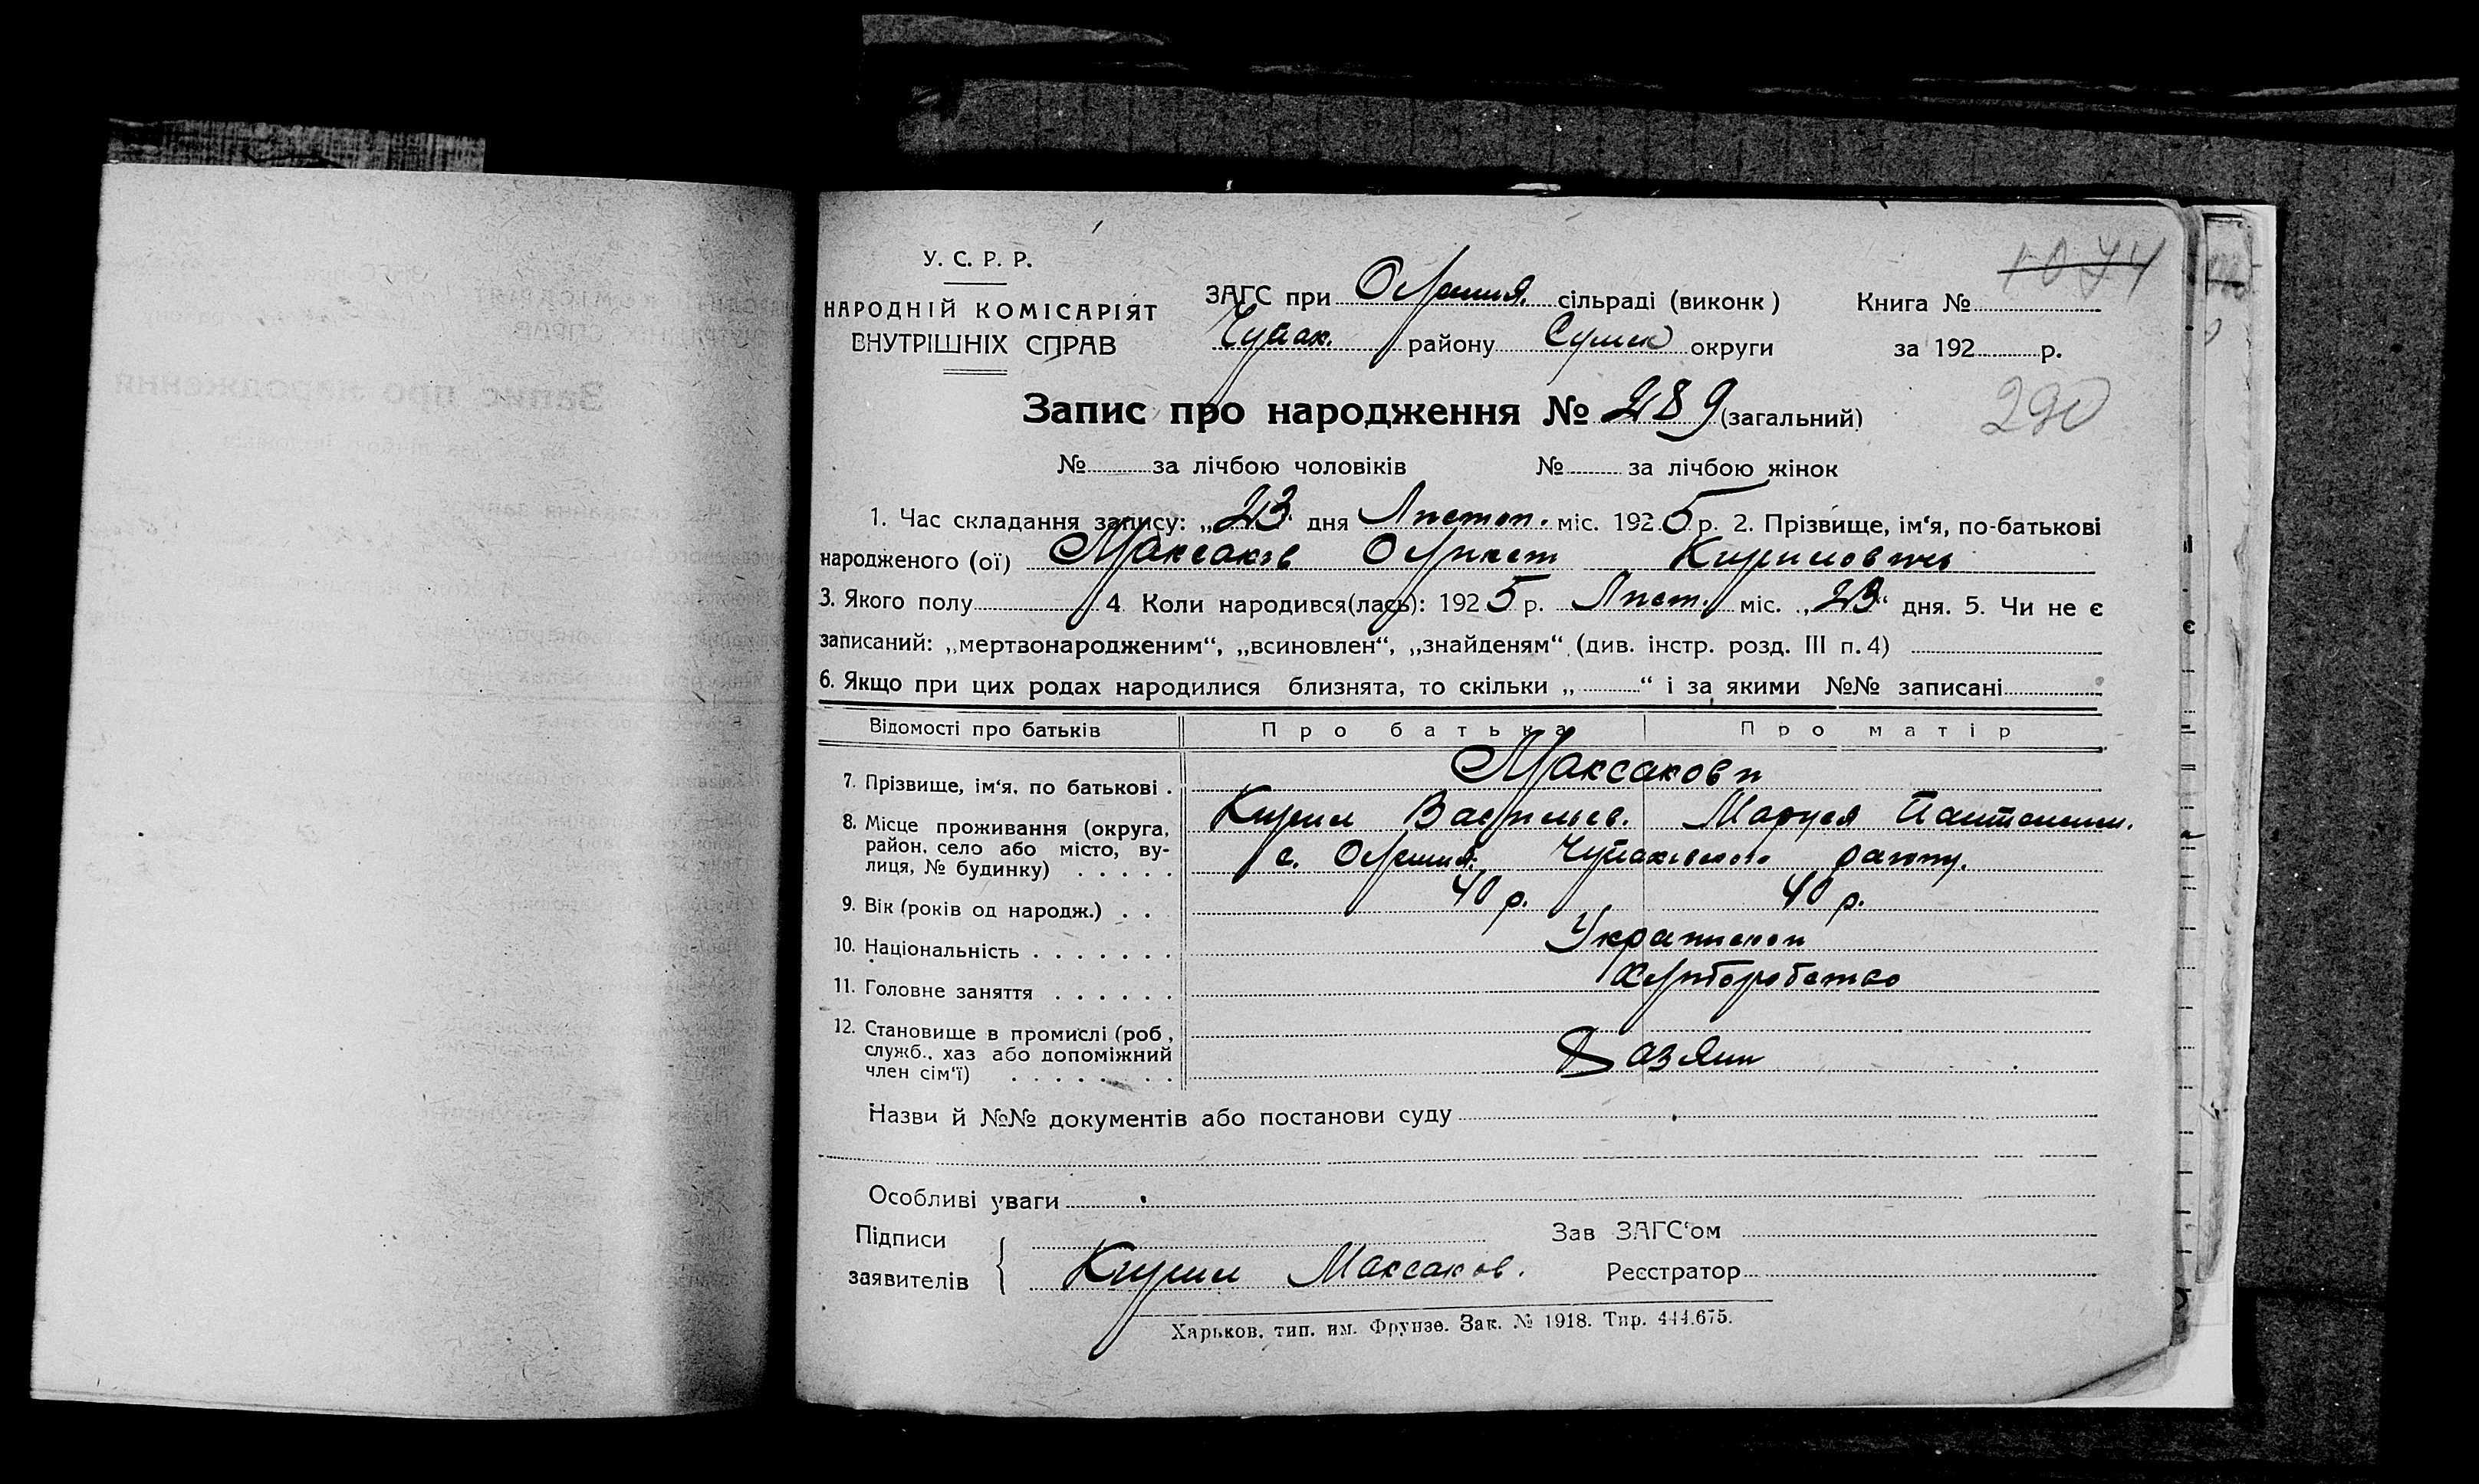 У. С. Р. Р.
НАРОДНІЙ КОМІСАРІЯТ
ВНУТРІШНІХ СПРАВ
ЗАГС при Олешня. сільраді (виконк) Книга №
Чупах. району Сумск округи за 192 р.
1074
Запис про народження № 289 (загальний)
290
№ за лічбою чоловіків № за лічбою жінок
1. Час складання запису: „23" дня Листоп. міс. 1925 р. 2. Прізвище, ім'я, по-батькові
народженого (ої) Максаков Кирилович
3. Якого полу 4. Коли народився(лась): 1925 р. Лист. міс. „23" дня. 5. Чи не є
записаний: „мертвонародженим", „всиновлен", „знайденям" (див. інстр. розд. III п. 4)
6. Якщо при цих родах народилися близнята, то скільки „ " і за якими №№ записані
Відомості про батьків Про батька Про матір
7. Прізвище, ім'я, по батькові . Максакови
Кирил Васильев. Маруся
8. Місце проживання (округа, район, село або місто, вулиця, № будинку) . . . . . с. Олешня Чупахівського району.
9. Вік (років од народж.) . . 40 р. 40 р.
10. Національність . . . . . . . Українськи
11. Головне заняття . . . . . . Хліборобство
12. Становище в промислі (роб,
служб., хаз або допоміжний
член сім'ї) . . . . . . . . Хазяин
Назви й №№ документів або постанови суду
Особливі уваги
Підписи Зав ЗАГС'ом
заявителів Кирил Максаков. Реєстратор
Харьков, тип. им. Фрунзе. Зак. № 1918. Тир. 444.675.